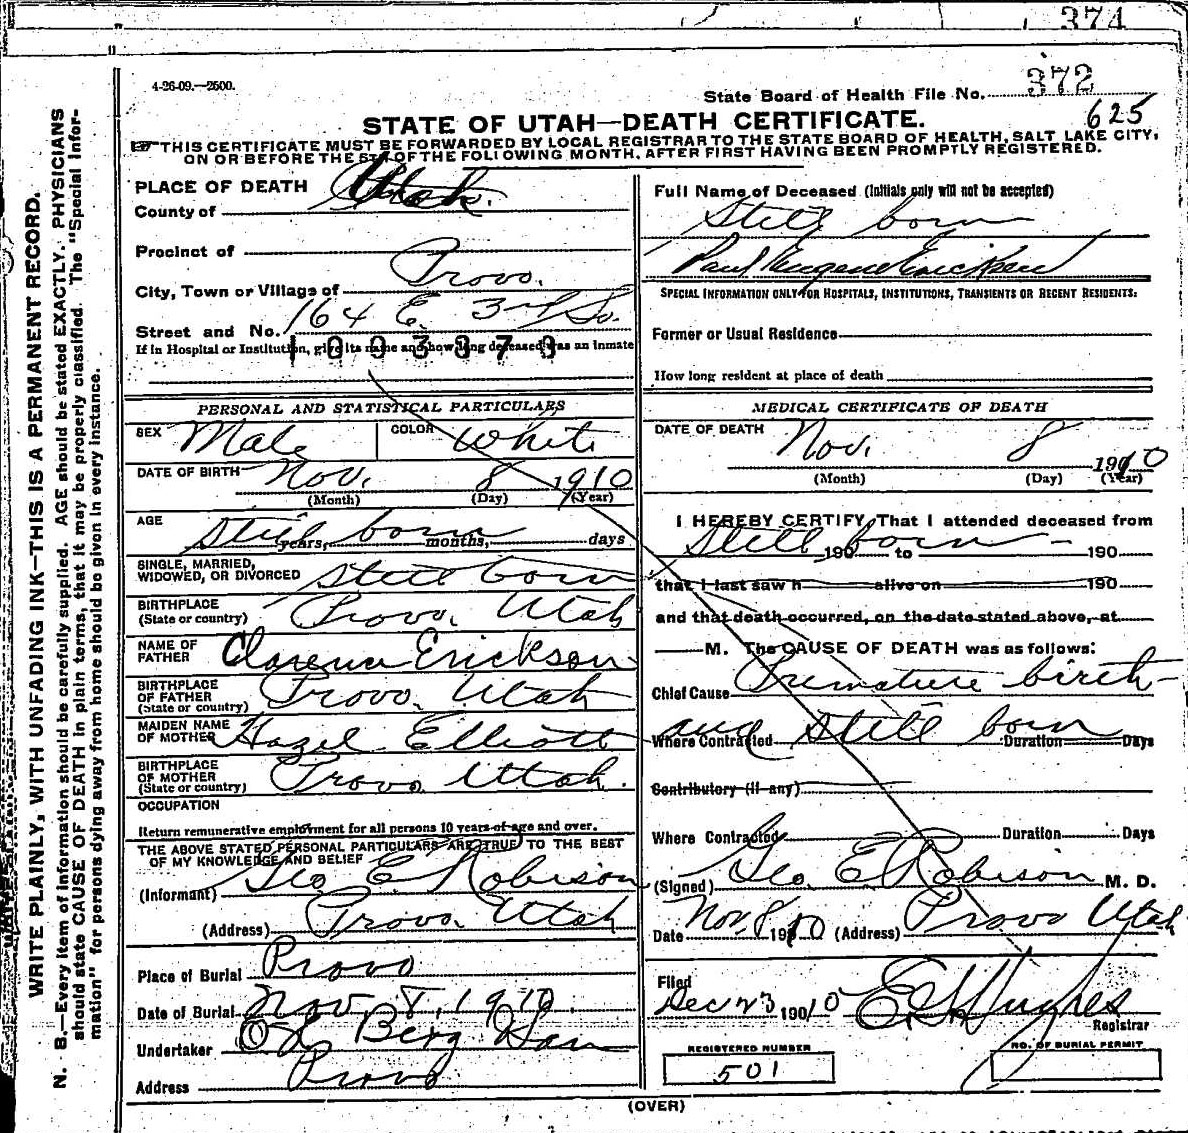 374
4-26-09.—2500.
State Board of Health File No. 372
625
STATE OF UTAH—DEATH CERTIFICATE.
THIS CERTIFICATE MUST BE FORWARDED BY LOCAL REGISTRAR TO THE STATE BOARD OF HEALTH, SALT LAKE CITY,
ON OR BEFORE THE 5TH OF THE FOLLOWING MONTH, AFTER FIRST HAVING BEEN PROMPTLY REGISTERED.
WRITE PLAINLY, WITH UNFADING INK—THIS IS A PERMANENT RECORD.
N. B.—Every item of information should be carefully supplied. AGE should be stated EXACTLY. PHYSICIANS
should state CAUSE OF DEATH in plain terms, that it may be properly classified. The "Special Infor-
mation" for persons dying away from home should be given in every instance.
PLACE OF DEATH
County of Utah.
Precinct of
City, Town or Village of Provo.
Street and No. 164 E. 3rd So.
If in Hospital or Institution, give its name and how long deceased was an inmate
1093379
PERSONAL AND STATISTICAL PARTICULARS
SEX Male COLOR White
DATE OF BIRTH Nov. 8 1910
(Month) (Day) (Year)
AGE Still born years, months, days
SINGLE, MARRIED,
WIDOWED, OR DIVORCED Still born
BIRTHPLACE
(State or country) Provo. Utah
NAME OF
FATHER Clarence Erickson
BIRTHPLACE
OF FATHER
(State or country) Provo. Utah
MAIDEN NAME
OF MOTHER Hazel Elliott
BIRTHPLACE
OF MOTHER
(State or country) Provo Utah.
OCCUPATION
Return remunerative employment for all persons 10 years of age and over.
THE ABOVE STATED PERSONAL PARTICULARS ARE TRUE TO THE BEST
OF MY KNOWLEDGE AND BELIEF
(Informant) Geo E. Robison
(Address) Provo. Utah
Place of Burial Provo
Date of Burial Nov 8, 1910.
Undertaker Berg
Address Provo
Full Name of Deceased (Initials only will not be accepted)
Still born
Paul Eugene Erickson
SPECIAL INFORMATION ONLY FOR HOSPITALS, INSTITUTIONS, TRANSIENTS OR RECENT RESIDENTS:
Former or Usual Residence
How long resident at place of death
MEDICAL CERTIFICATE OF DEATH
DATE OF DEATH Nov. 8 1910
(Month) (Day) (Year)
I HEREBY CERTIFY, That I attended deceased from
Still born 190 to 190
that I last saw h alive on 190
and that death occurred, on the date stated above, at
M. The CAUSE OF DEATH was as follows:
Chief Cause Premature birth
and Still born
Where Contracted Duration Days
Contributory (if any)
Where Contracted Duration Days
(Signed) Geo. E. Robison M. D.
Date Nov. 8 1910 (Address) Provo Utah
Filed
Dec 23 1910 Hughes
Registrar
REGISTERED NUMBER
501
NO. OF BURIAL PERMIT
(OVER)